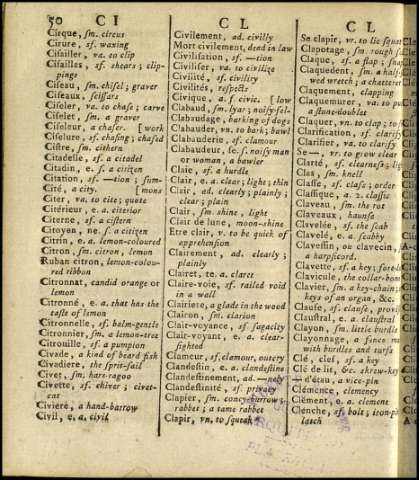 50 CI
Cirque, sm. circus
Cirure, sf. waxing
Cisailler, va. to clip
Cisailles, sf. shears; clip-
pings
Ciseau, sm. chisel; graver
Ciseaux, scissars
Ciseler, va. to chase; carve
Ciselet, sm. a graver
Ciseleur, a chaser. [work
Ciselure, sf. chasing; chased
Cistre, sm. cithern
Citadelle, sf. a citadel
Citadin, e. s. a citizen
Citation, sf. —tion; sum-
Cité, a city. [mons
Citer, va. to cite; quote
Citérieur, e. a. citerior
Citerne, sf. a cistern
Citoyen, ne. s. a citizen
Citrin, e. a. lemon-coloured
Citron, sm. citron, lemon
Ruban citron, lemon-colou-
red ribbon
Citronnat, candid orange or
lemon
Citronné, e. a. that has the
taste of lemon
Citronnelle, sf. balm-gentle
Citronnier, sm. a lemon-tree
Citrouille, sf. a pumpion
Civade, a kind of beard fish
Civadiere, the sprit-sail
Civet, sm. hare-ragoo
Civette, sf. chiver; civet-
cat
Civiere, a hand-barrow
Civil, e. a. civil
CL
Civilement, ad. civilly
Mort civilement, dead in law
Civilisation, sf. —tion
Civiliser, va. to civilize
Civilité, sf. civility
Civilités, respects
Civique, a. f. civic. [low
Clabaud, sm. lyar; noisy-fel-
Clabaudage, barking of dogs
Clabauder, vn. to bark; bawl
Clabauderie, sf. clamour
Clabaudeur, se. s. noisy man
or woman, a bawler
Claie, sf. a hurdle
Clair, e. a. clear; light; thin
Clair, ad. clearly; plainly;
clear; plain
Clair, sm. shine, light
Clair de lune, moon-shine
Etre clair, v. to be quick of
apprehension
Clairement, ad. clearly;
plainly
Clairet, te. a. claret
Claire-voie, sf. railed void
in a wall
Clairiere, a glade in the wood
Clairon, sm. clarion
Clair-voyance, sf. sagacity
Clair-voyant, e. a. clear-
sighted
Clameur, sf. clamour, outcry
Clandestin, e. a. clandestine
Clandestinement, ad.
Clandestinité, sf. privacy
Clapier, sm. concyburrow
rabbet; a tame rabbet
Clapir, vn. to squeak
CL
Se clapir, vr. to lie squat
Clapotage, sm. rough
Claque, sf. a slap;
Claquedent, sm. a half-
wretch; a chatterer
Claquement, clapping
Claquemurer, va. to
a stone-doublet
Claquer, vn. to clap; to
Clarification, sf. clarif
Clarifier, va. to clarify
Se —, vr. to grow clear
Clarté, sf. clearness;
Clas, sm. knell
Classe, sf. class; order
Classique, a. 2. classic
Claveau, sm. the rot
Claveaux, haunse
Clavelée, sf. the scab
Clavelé, e. a. scabby
Clavessin, ou clavecin,
harpsicord.
Clavette, sf. a key; fore-
Clavicule, the collar-bone
Clavier, sm. a key-chain;
keys of an organ, &c.
Clause, sf. clause, proviso
Claustral, e. a. claustral
Clayon, sm. little hurdle
Clayonnage, a fence
with hurdles and turfs
Clé, clef, sf. a key
Clé de lit, &c. skrew-key
— d'étau, a vice-pin
Clémence, clemency
Clément, e. a. clement
Clenche, sf. bolt; iron-
latch